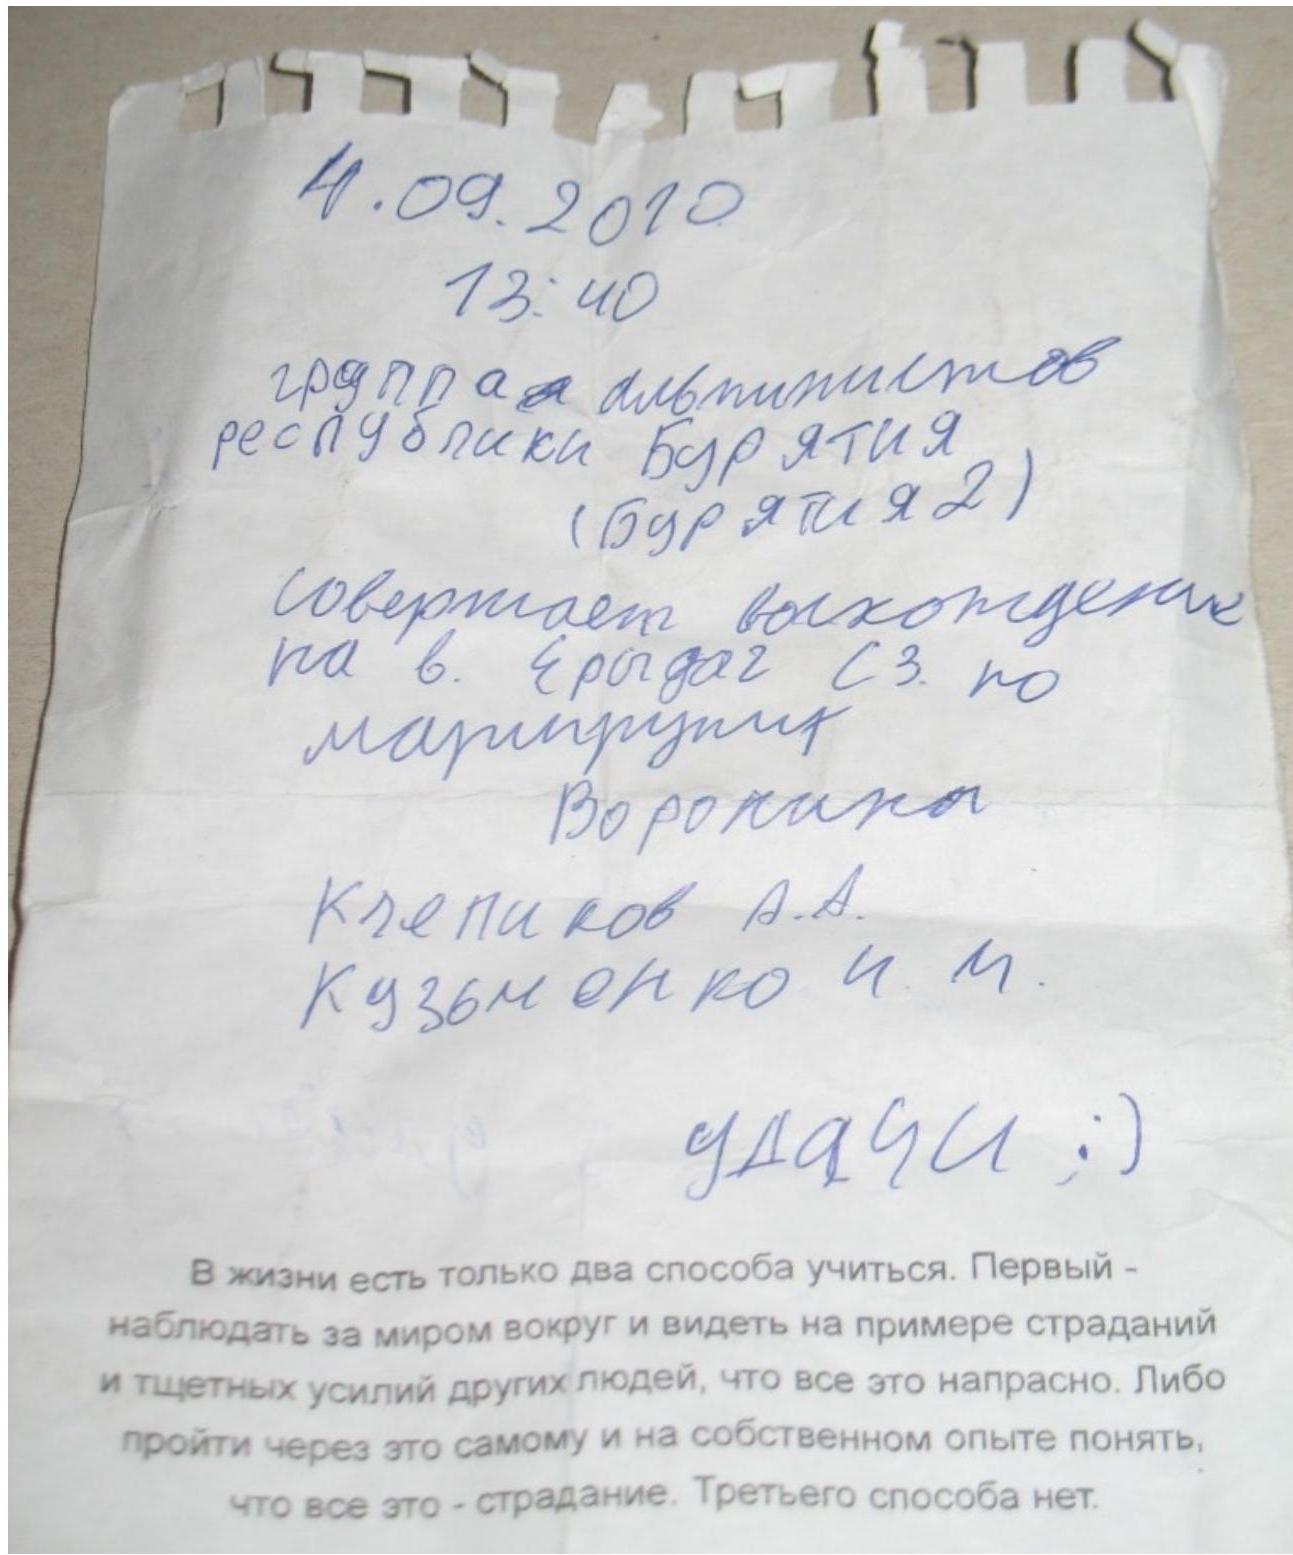 4.09.2010
13:40
группа альпинистов
республики Бурятия
(Бурятия 2)
совершает восхождение
на в. Ерыдаг СЗ. по
маршруту
Воронина
Клепиков А.А.
Кузьменко И.М.
удачи ;)
В жизни есть только два способа учиться. Первый -
наблюдать за миром вокруг и видеть на примере страданий
и тщетных усилий других людей, что все это напрасно. Либо
пройти через это самому и на собственном опыте понять,
что все это - страдание. Третьего способа нет.